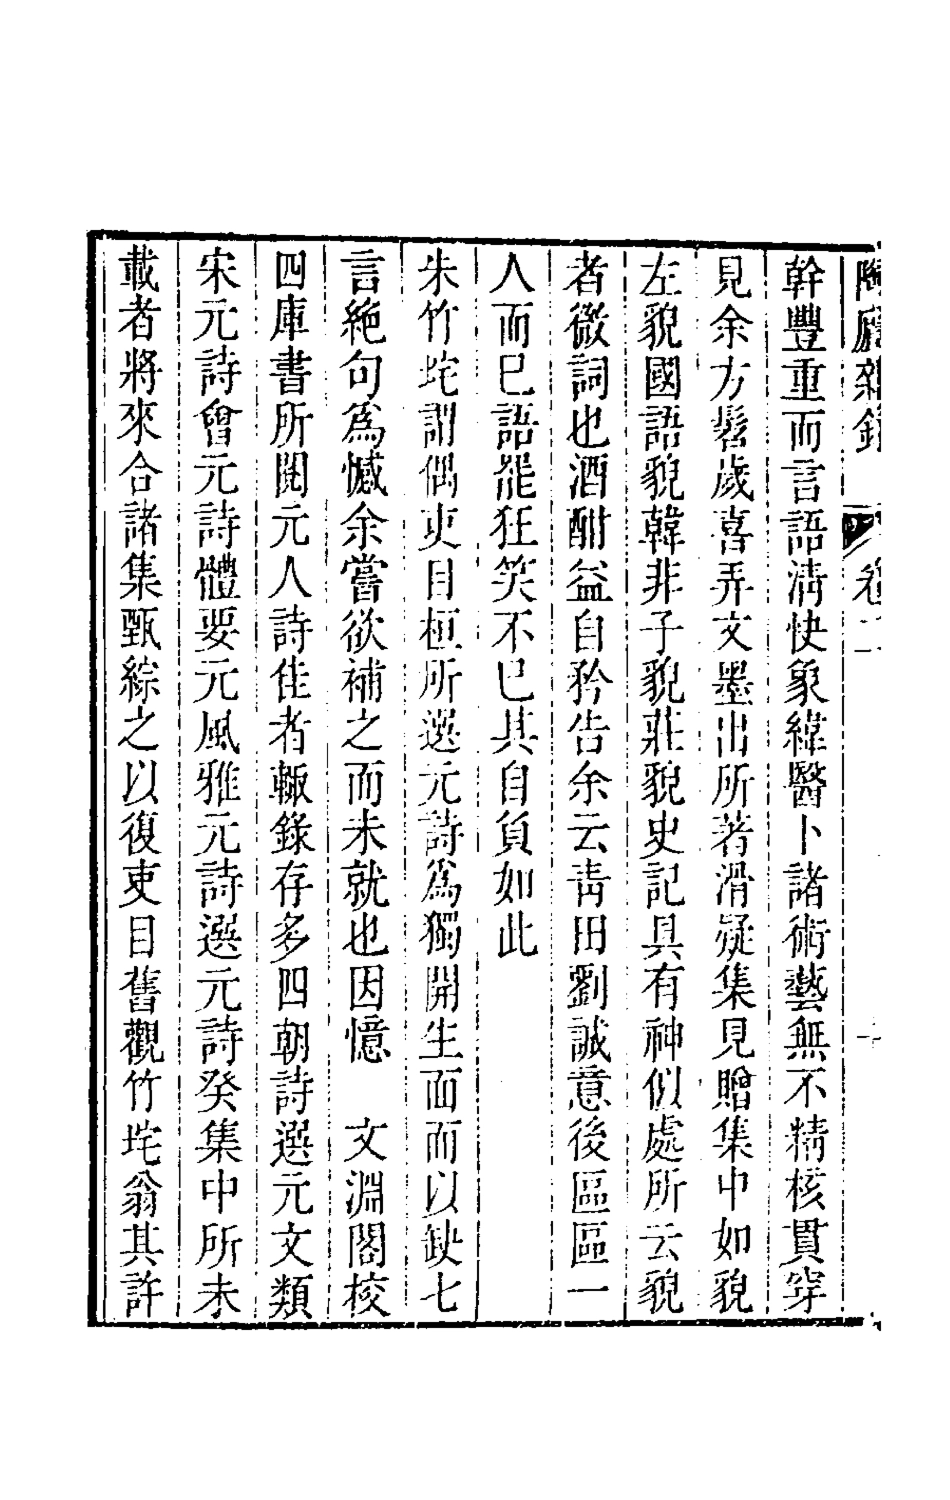 陶廬雜錄 卷二
幹豐重而言語淸快象緯醫卜諸術藝無不精核貫穿
見余方髫歲喜弄文墨出所著滑疑集見贈集中如貌
左貌國語貌韓非子貌莊貌史記具有神似處所云貌
者微詞也酒酣益自矜告余云靑田劉誠意後區區一
人而巳語罷狂笑不巳其自負如此
朱竹垞謂偶吏目桓所選元詩爲獨開生面而以缺七
言絕句爲憾余嘗欲補之而未就也因憶　文淵閣校
四庫書所閱元人詩佳者輙錄存多四朝詩選元文類
宋元詩會元詩體要元風雅元詩選元詩癸集中所未
載者將來合諸集甄綜之以復吏目舊觀竹垞翁其許